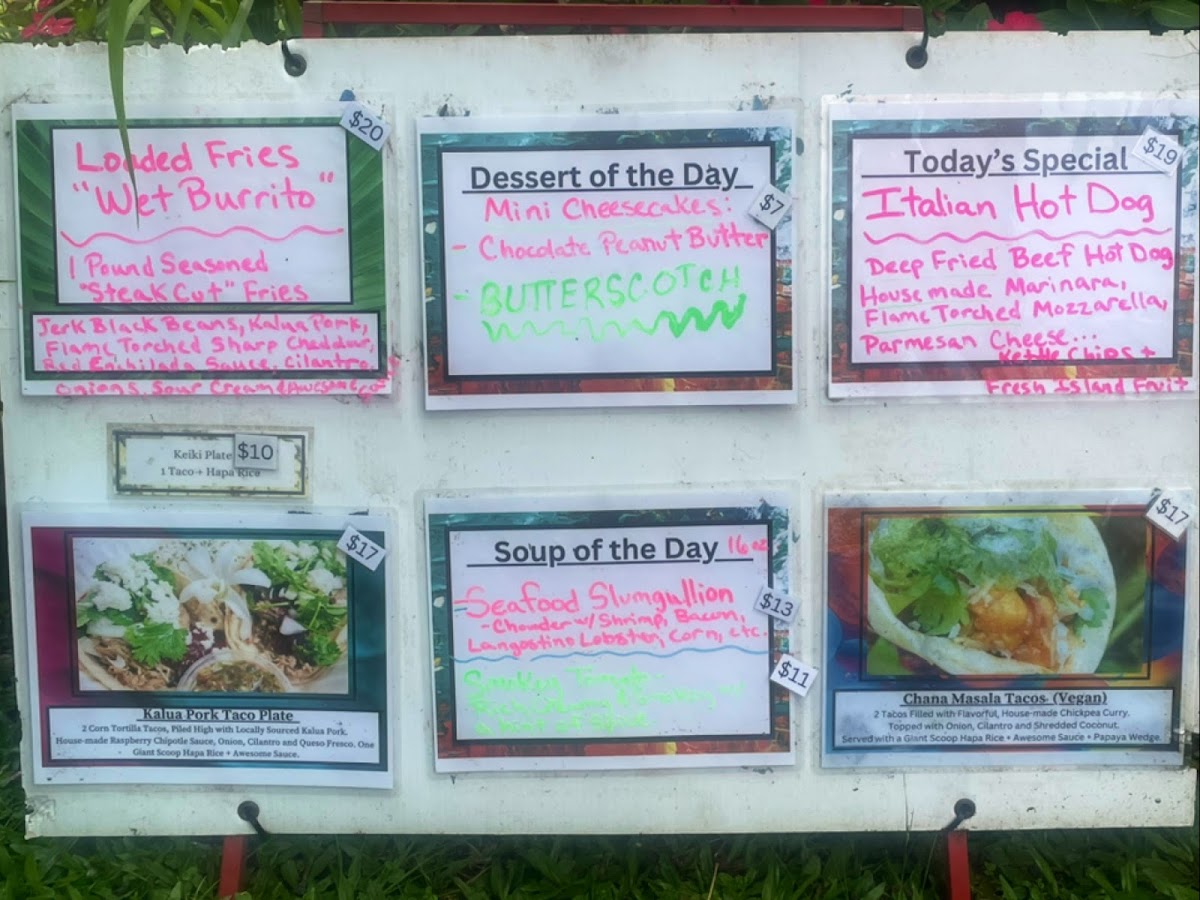 $20
Loaded Fries
"Wet Burrito"
1 Pound Seasoned
"Steak Cut" Fries
Jerk Black Beans, Kalua Pork,
Flame Torched Sharp Cheddar,
Red Enchilada Sauce, Cilantro,
Onions, Sour Cream & Awesome
Dessert of the Day
$7
Mini Cheesecakes:
- Chocolate Peanut Butter
- BUTTERSCOTCH
$19
Today's Special
Italian Hot Dog
Deep Fried Beef Hot Dog
House made Marinara,
Flame Torched Mozzarella,
Parmesan Cheese...
Kettle Chips +
Fresh Island Fruit
Keiki Plate $10
1 Taco + Hapa Rice
$17
Kalua Pork Taco Plate
2 Corn Tortilla Tacos, Piled High with Locally Sourced Kalua Pork,
House-made Raspberry Chipotle Sauce, Onion, Cilantro and Queso Fresco. One
Giant Scoop Hapa Rice + Awesome Sauce.
Soup of the Day 16 oz
- Seafood Slumgullion
$13
- Chowder w/ Shrimp, Bacon,
Langostino Lobster, Corn, etc.
$11
Smokey Tomato
Rich, Creamy & Smokey w/
a hint of spice
$17
Chana Masala Tacos (Vegan)
2 Tacos Filled with Flavorful, House-made Chickpea Curry.
Topped with Onion, Cilantro and Shredded Coconut.
Served with a Giant Scoop Hapa Rice + Awesome Sauce + Papaya Wedge.